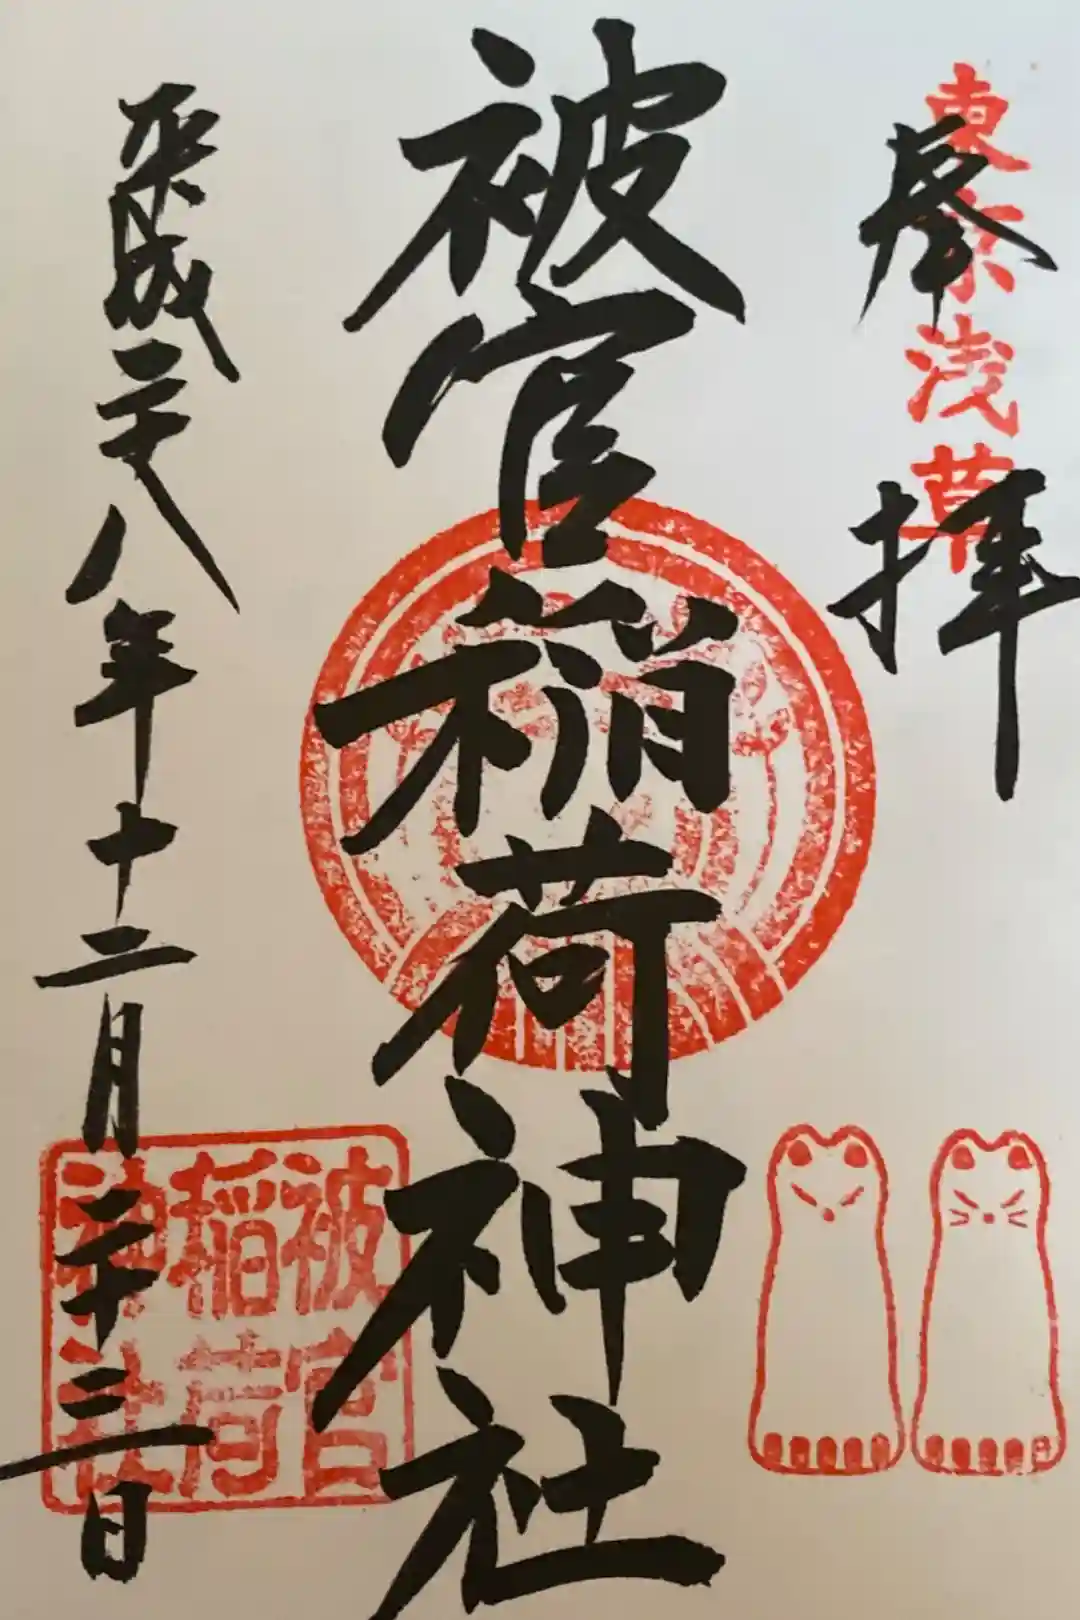 東京浅草
奉拝
被官稲荷神社
平成二十八年十二月二十三日
被官
稲荷
神社